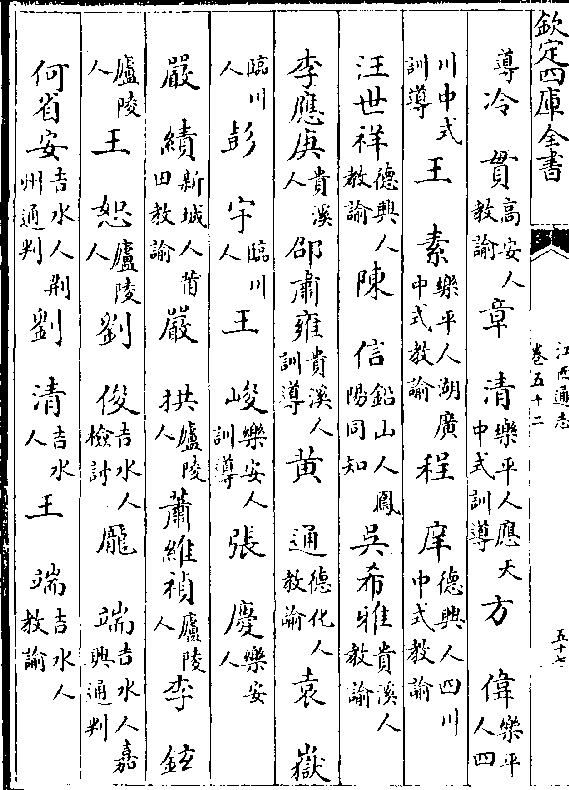 欽定四庫全書
江西通志
卷五十二
五十七
導冷貫高安人教諭章清樂平人應天中式訓導方偉樂平人四
川中式訓導王素樂平人湖廣中式教諭程庠德興人四川中式教諭
汪世祥德興人教諭陳信鉛山人鳳陽同知吳希雅貴溪人教諭
李應庚貴溪人邵肅雍貴溪人訓導黄通德化人教諭袁嶽
臨川人彭宇臨川人王峻樂安人訓導張慶樂安人
嚴績新城人莆田教諭嚴珙廬陵人蕭維禎廬陵人李鉉
廬陵人王恕廬陵人劉俊吉水人檢討龎端吉水人嘉興通判
何省安吉水人荆州通判劉清吉水人王端吉水人教諭